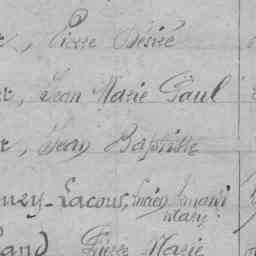 r, Pierre Désiré
er, Jean Marie Paul
r, Jean Baptiste
ney-Lacour, Lucien Amand
Marie
and Pierre Marie